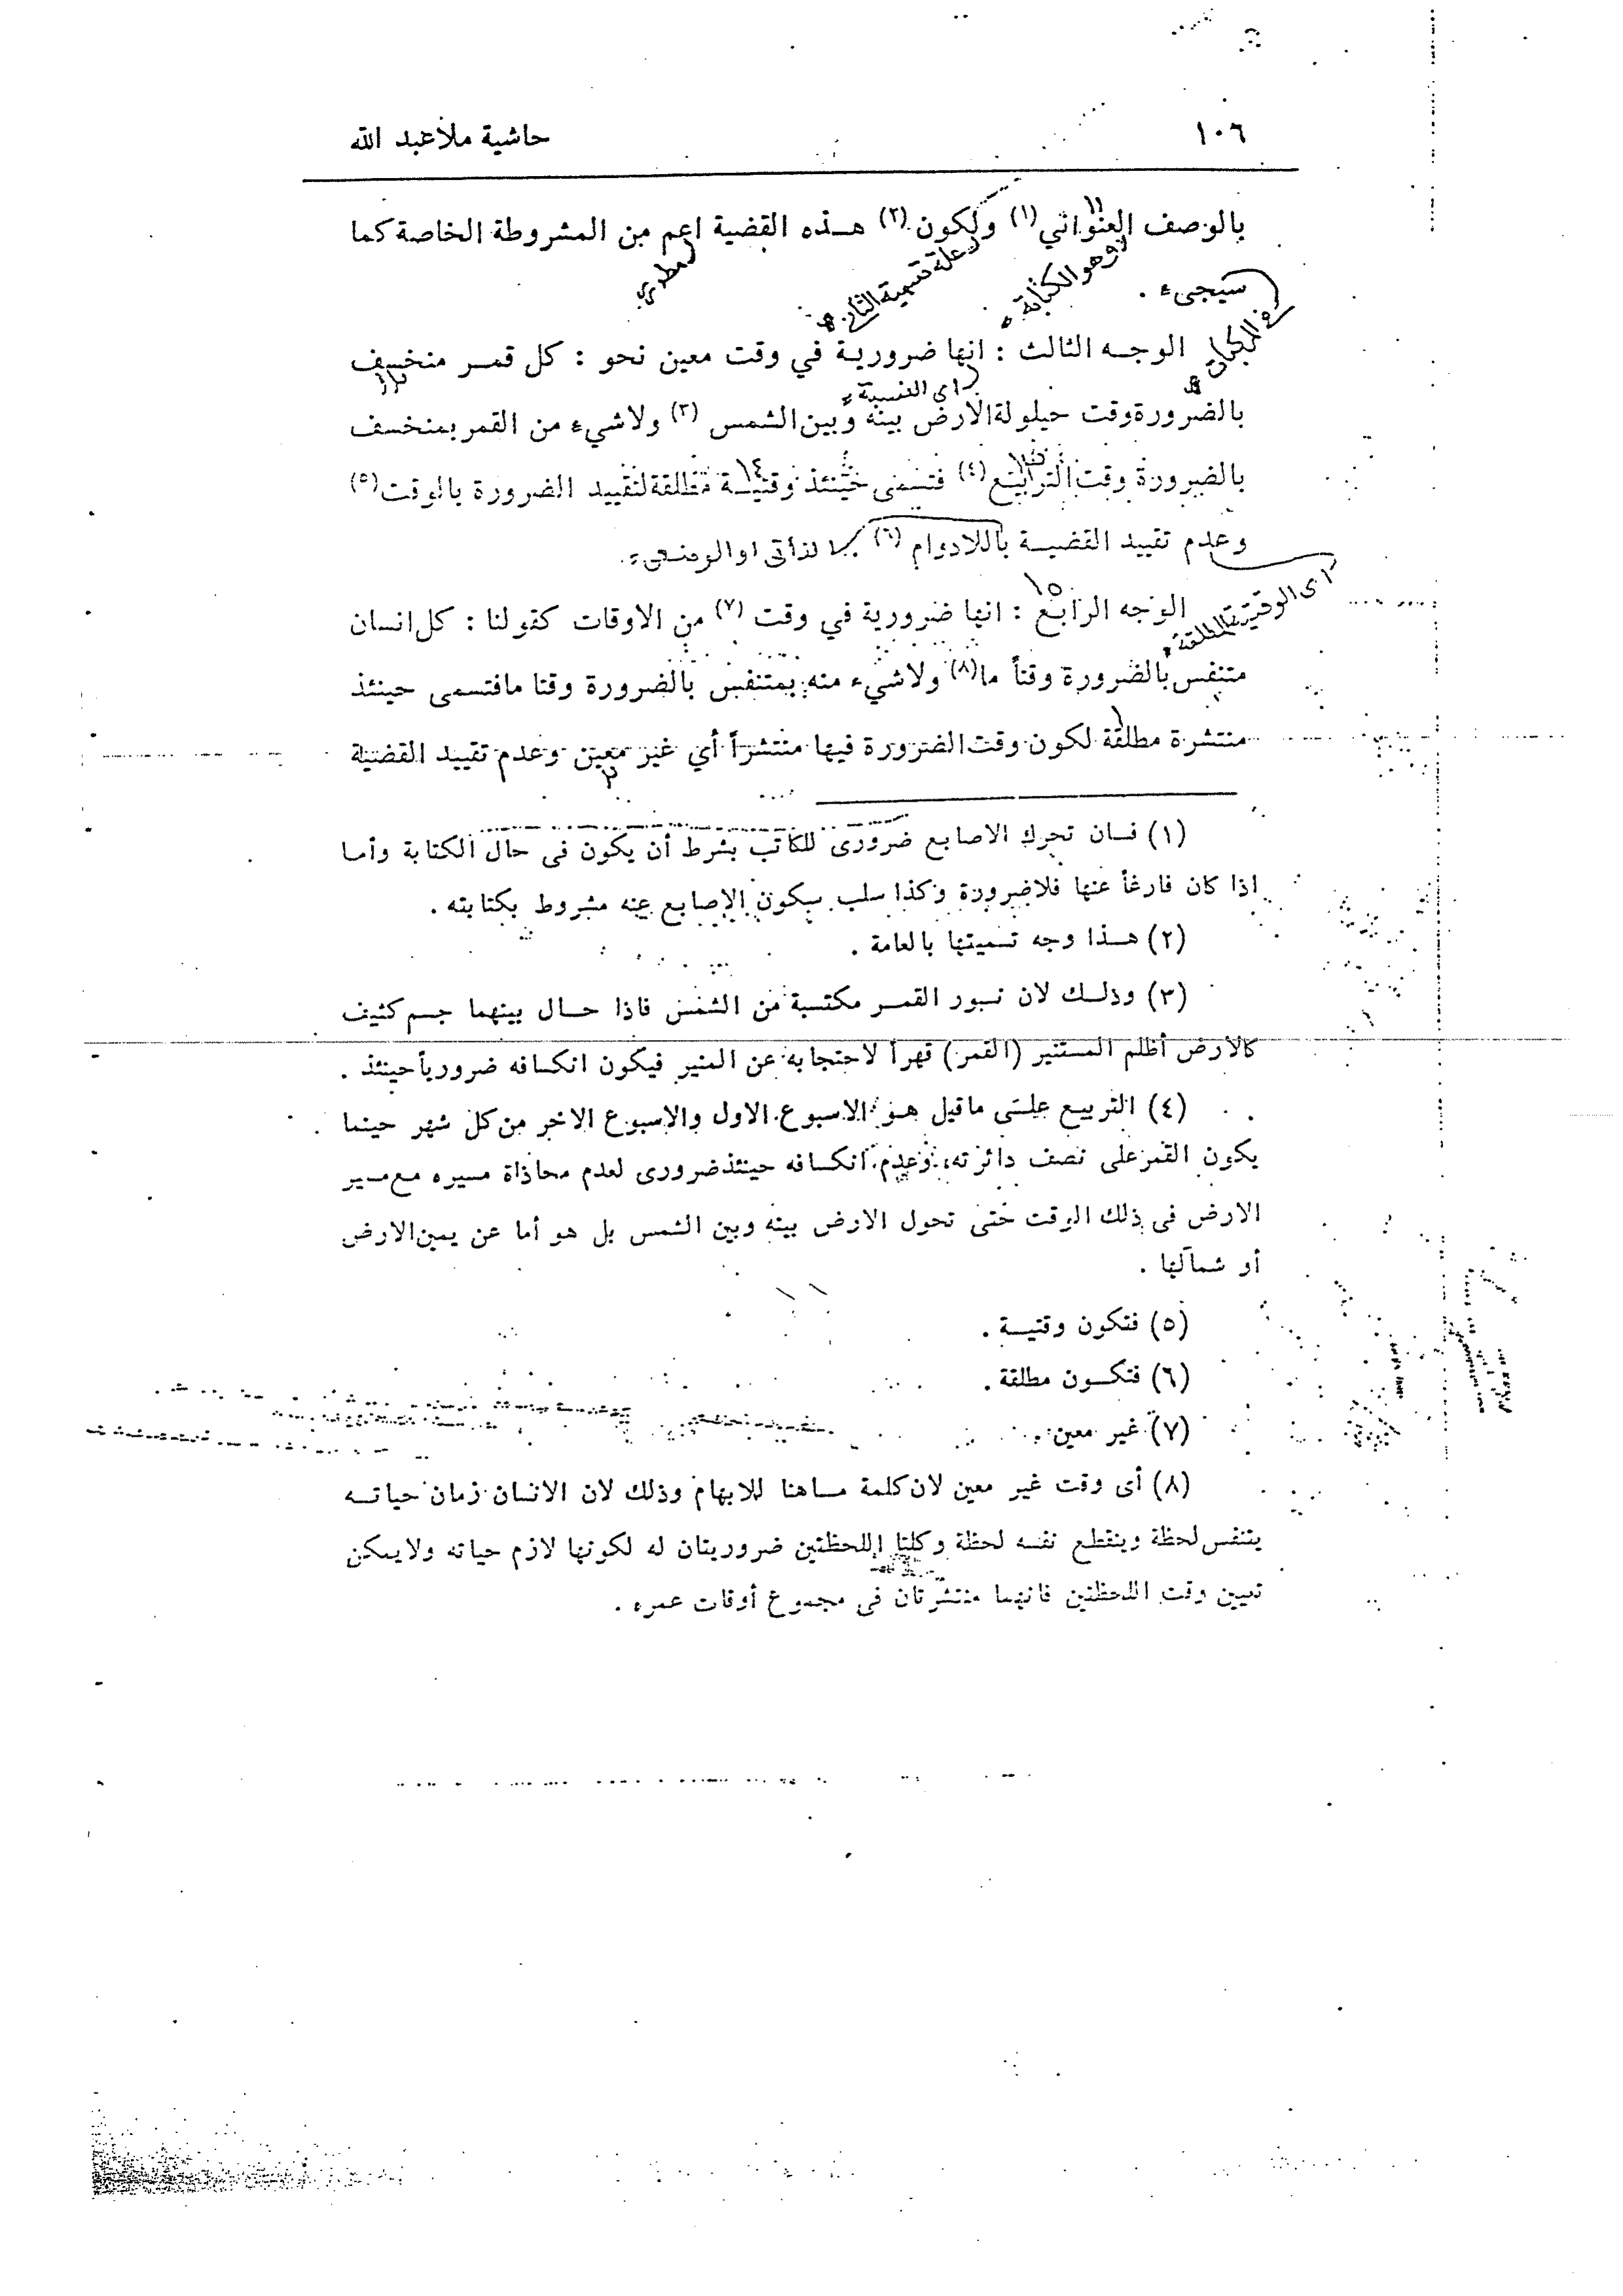 ١٠٦ حاشية ملاعبد الله
بالوصف العنواني (١) ولكون (٢) هـذه القضية اعم من المشروطة الخاصة كما
سيجىء .
الوجـه الثالث : انها ضروريـة في وقت معين نحو : كل قمـر منخسف
بالضرورة وقت حيلولة الارض بينه وبين الشمس (٣) ولاشيء من القمر بمنخسف
بالضرورة وقت التربيع (٤) فتسمى حينئذ وقتيـة مطلقة لتقييد الضرورة بالوقت (٥)
وعدم تقييد القضيـة باللادوام (٦)
الوجه الرابع : انها ضرورية في وقت (٧) من الاوقات كقولنا : كل انسان
متنفس بالضرورة وقتاً ما (٨) ولاشيء منه بمتنفس بالضرورة وقتا مافتسمى حينئذ
منتشرة مطلقة لكون وقت الضرورة فيها منتشراً أي غير معين وعدم تقييد القضية
وهو الكتابة
علة تسمية الثانى
اى النسبة
اى الوقتية المطلقة
(١) فـان تحرك الاصابع ضرورى للكاتب بشرط أن يكون فى حال الكتابة وأمـا
اذا كان فارغاً عنها فلاضرورة وكذا سلب سكون الاصابع عنه مشروط بكتابته .
(٢) هـذا وجه تسميتها بالعامة .
(٣) وذلـك لان نـور القمـر مكتسبة من الشمس فاذا حـال بينهما جسم كثيف
كالارض أظلم المستنير (القمر) قهراً لاحتجابه عن المنير فيكون انكسافه ضرورياً حينئذ .
(٤) التربيع علـى ماقيل هـو الاسبوع الاول والاسبوع الاخر من كل شهر حينما
يكون القمر على نصف دائرته، وعدم انكسافه حينئذ ضرورى لعدم محاذاة مسيره مـع مسير
الارض فى ذلك الوقت حتى تحول الارض بينه وبين الشمس بل هو أما عن يمين الارض
أو شمالها .
(٥) فتكون وقتيـة .
(٦) فتكـون مطلقة .
(٧) غير معين .
(٨) أى وقت غير معين لان كلمة مـاهنا للابهام وذلك لان الانسان زمان حياتـه
يتنفس لحظة وينقطع نفسه لحظة وكلتا اللحظتين ضروريتان له لكونها لازم حياته ولايمكن
تعيين وقت اللحظتين فانهما منتشرتان فى مجموع أوقات عمره .